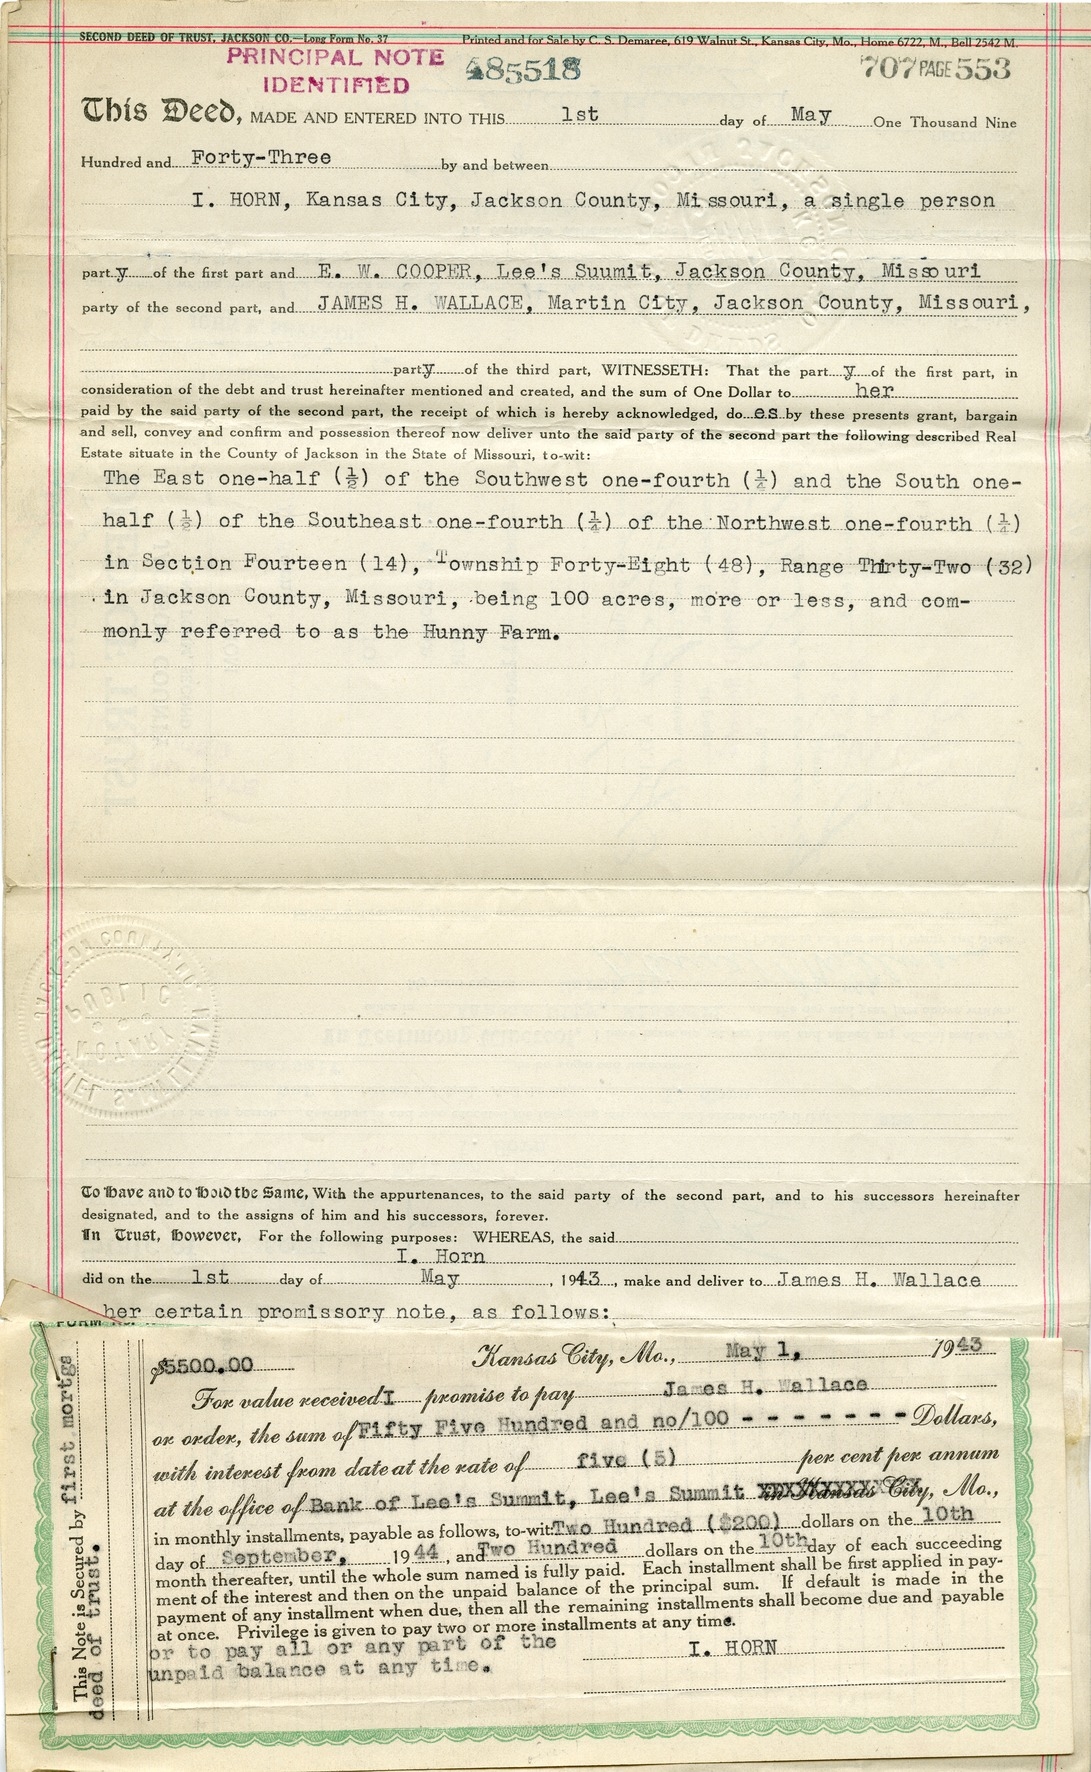 SECOND DEED OF TRUST, JACKSON CO.—Long Form No. 37 Printed and for Sale by C. S. Demaree, 619 Walnut St., Kansas City, Mo., Home 6722, M., Bell 2542 M.
PRINCIPAL NOTE
IDENTIFIED
485518
707 PAGE 553
This Deed, MADE AND ENTERED INTO THIS 1st day of May One Thousand Nine
Hundred and Forty-Three by and between
I. HORN, Kansas City, Jackson County, Missouri, a single person
part y of the first part and E. W. COOPER, Lee's Suumit, Jackson County, Missouri
party of the second part, and JAMES H. WALLACE, Martin City, Jackson County, Missouri,
party of the third part, WITNESSETH: That the part y of the first part, in
consideration of the debt and trust hereinafter mentioned and created, and the sum of One Dollar to her
paid by the said party of the second part, the receipt of which is hereby acknowledged, do es by these presents grant, bargain
and sell, convey and confirm and possession thereof now deliver unto the said party of the second part the following described Real
Estate situate in the County of Jackson in the State of Missouri, to-wit:
The East one-half (½) of the Southwest one-fourth (¼) and the South one-
half (½) of the Southeast one-fourth (¼) of the Northwest one-fourth (¼)
in Section Fourteen (14), Township Forty-Eight (48), Range Thirty-Two (32)
in Jackson County, Missouri, being 100 acres, more or less, and com-
monly referred to as the Hunny Farm.
PUBLIC
NOTARY
To Have and to Hold the Same, With the appurtenances, to the said party of the second part, and to his successors hereinafter
designated, and to the assigns of him and his successors, forever.
In Trust, However, For the following purposes: WHEREAS, the said
I. Horn
did on the 1st day of May, 1943, make and deliver to James H. Wallace
her certain promissory note, as follows:
This Note is Secured by first mortgs
deed of trust.
$5500.00 Kansas City, Mo., May 1, 1943
For value received I promise to pay James H. Wallace
or order, the sum of Fifty Five Hundred and no/100 - - - - - - - - Dollars,
with interest from date at the rate of five (5) per cent per annum
at the office of Bank of Lee's Summit, Lee's Summit in Kansas City, Mo.,
in monthly installments, payable as follows, to-wit: Two Hundred ($200) dollars on the 10th
day of September, 1944, and Two Hundred dollars on the 10th day of each succeeding
month thereafter, until the whole sum named is fully paid. Each installment shall be first applied in pay-
ment of the interest and then on the unpaid balance of the principal sum. If default is made in the
payment of any installment when due, then all the remaining installments shall become due and payable
at once. Privilege is given to pay two or more installments at any time.
or to pay all or any part of the
unpaid balance at any time.
I. HORN